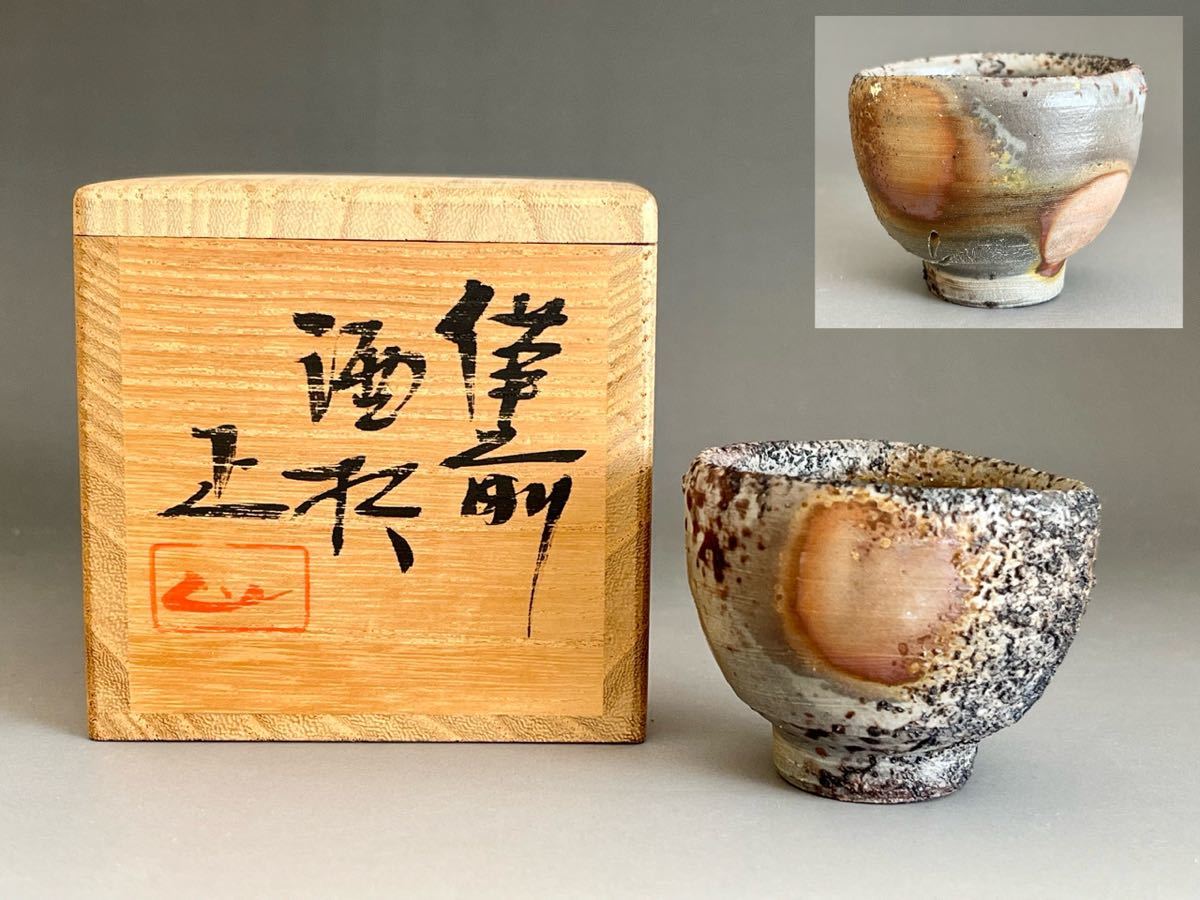 備前
酒杯
上